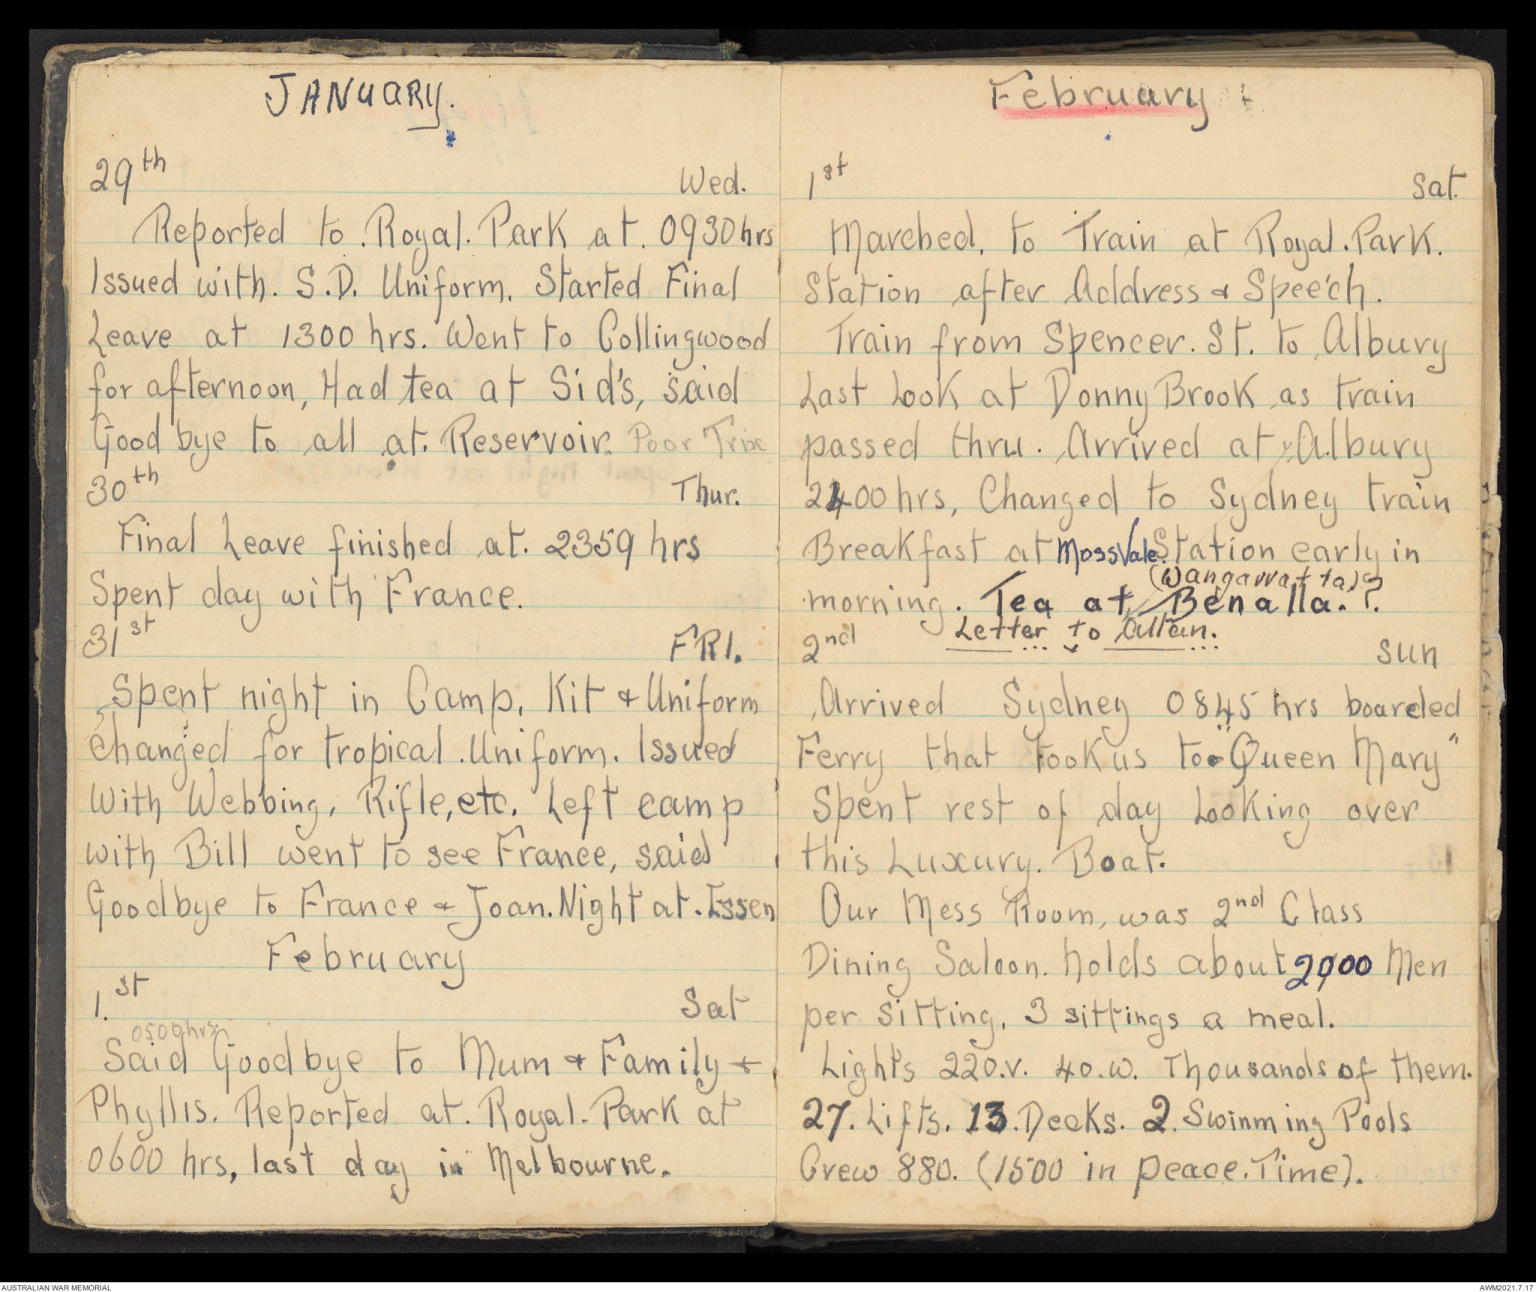 JANUARY.
29th Wed.
Reported to Royal. Park at. 0930 hrs
Issued with. S.D. Uniform. Started Final
Leave at 1300 hrs. Went to Collingwood
for afternoon, Had tea at Sid's, said
Good bye to all at. Reservoir. Poor Trix
30th Thur.
Final Leave finished at. 2359 hrs
Spent day with France.
31st FRI.
Spent night in Camp, Kit & Uniform
changed for tropical. Uniform. Issued
With Webbing, Rifle, etc. Left camp
with Bill went to see France, said
Goodbye to France & Joan. Night at. Essen
February
1.st Sat
0500 hrs
Said Goodbye to Mum & Family &
Phyllis. Reported at. Royal. Park at
0600 hrs, last day in Melbourne.
February
1st Sat.
Marched, to Train at Royal. Park.
Station after Address & Speech.
Train from Spencer. St. to Albury
Last Look at Donny Brook as train
passed thru. Arrived at Albury
2400 hrs, Changed to Sydney train
Breakfast at Moss Vale Station early in
(Wangarratta)?
morning. Tea at Benalla.?
Letter to Allan.
2nd Sun
Arrived Sydney 0845 hrs boarded
Ferry that took us to "Queen Mary"
Spent rest of day Looking over
this Luxury. Boat.
Our Mess Room, was 2nd Class
Dining Saloon. holds about 2000 Men
per sitting, 3 sittings a meal.
Lights 220.v. 40.w. Thousands of them.
27. Lifts. 13. Decks. 2. Swinming Pools
Crew 880. (1500 in peace. Time).
AUSTRALIAN WAR MEMORIAL
AWM2021.7.17